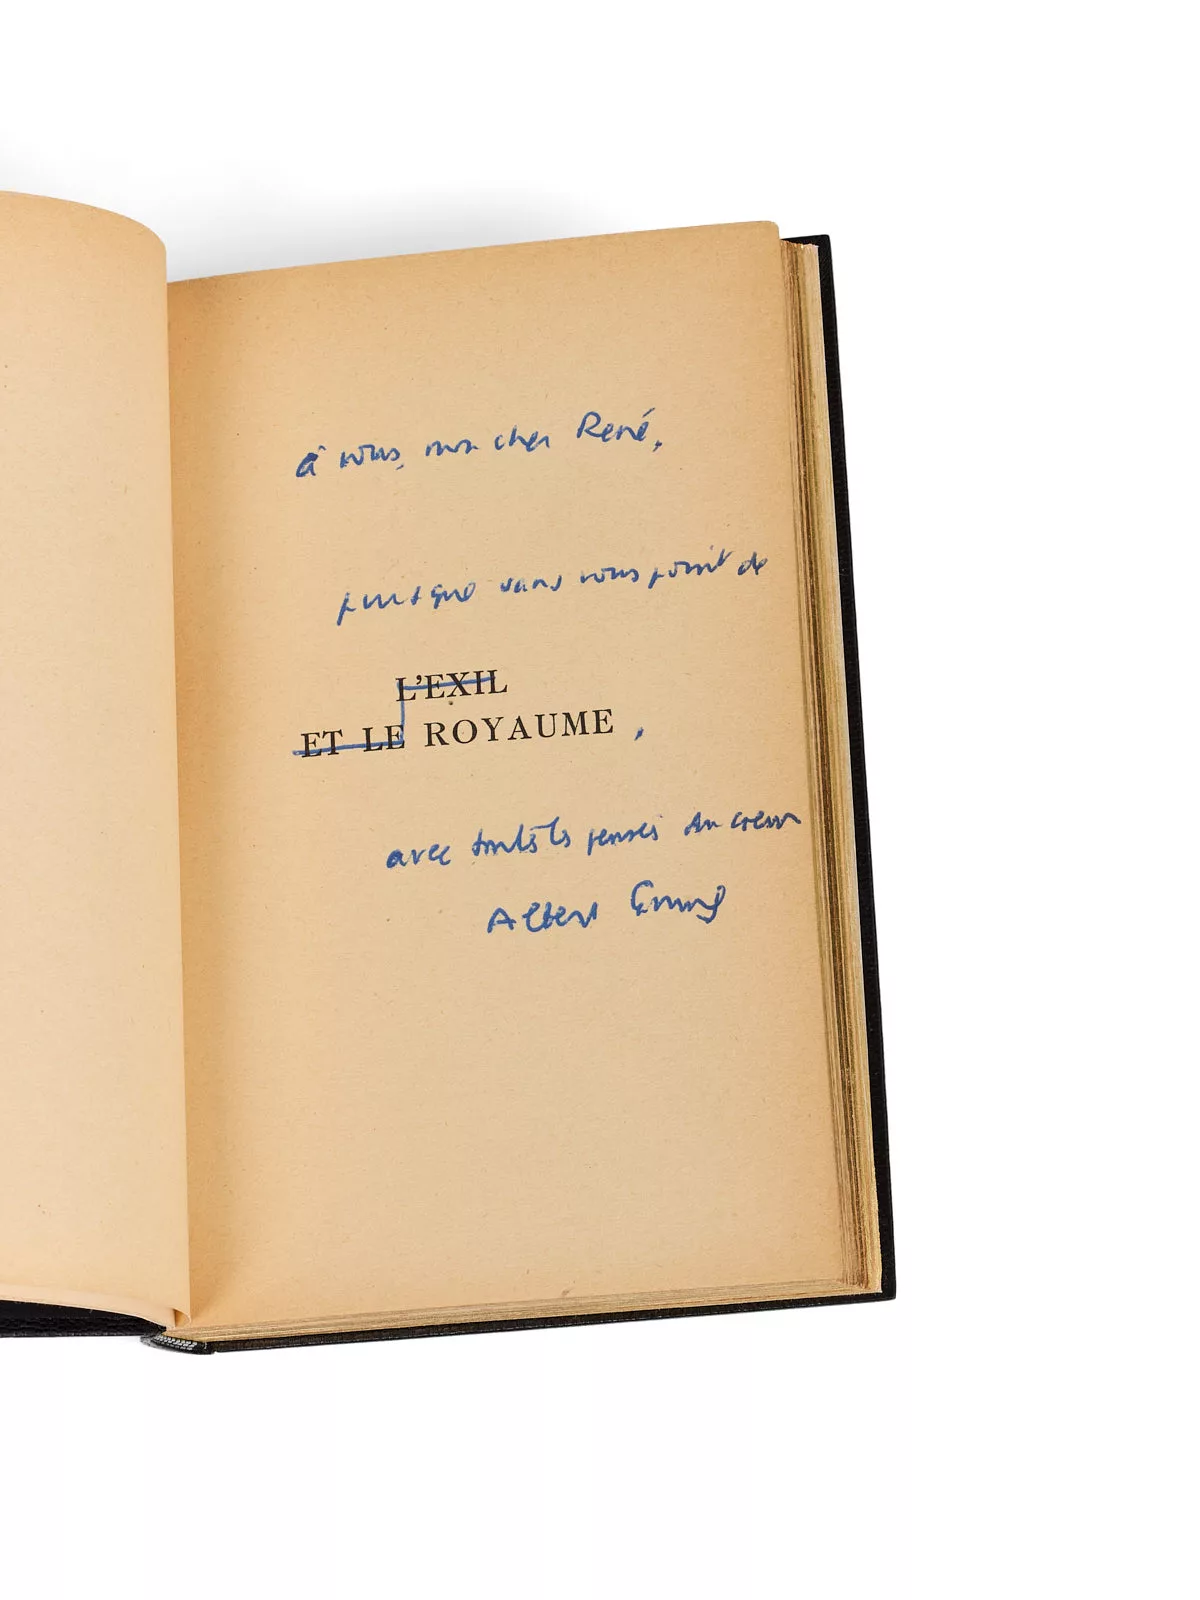 à vous, mon cher René,
puisque sans vous point de
L'EXIL
ET LE ROYAUME,
avec toutes les pensées du cœur
Albert Camus